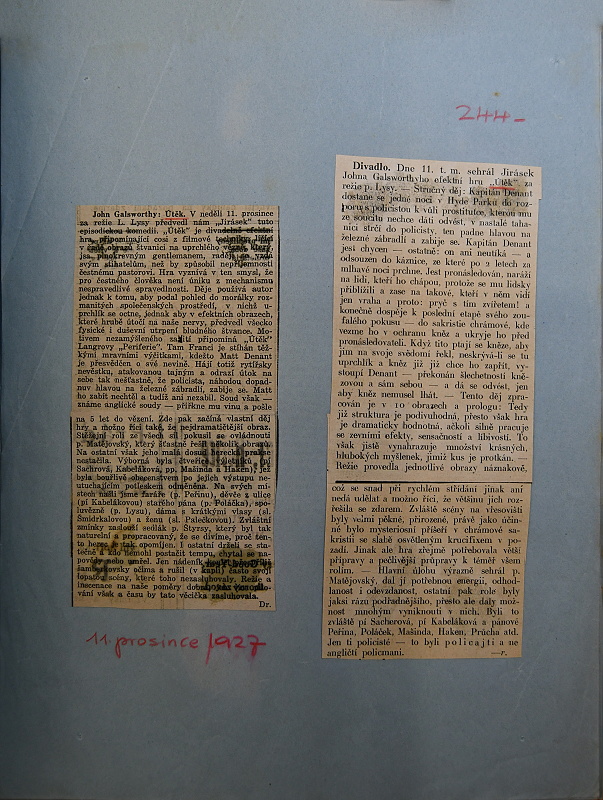 244-
John Galsworthy: Útěk. V neděli 11. prosince
za režie L. Lysy předvedl nám „Jirásek" tuto
episodickou komedii. „Útěk" je divadelně efektní
hra, připomínající cosi z filmové techniky, líčící
v obrazů štvanici na uprchlého vězně, který,
jsa plnokrevným gentlemanem, raději se vzdá
svým stihatelům, než by způsobil nepříjemnosti
čestnému pastorovi. Hra vyznívá v ten smysl, že
pro čestného člověka není úniku z mechanismu
nespravedlivé spravedlnosti. Děje používá autor
jednak k tomu, aby podal pohled do morálky roz-
manitých společenských prostředí, v nichž u-
prchlík se octne, jednak aby v efektních obrazech,
které hrubě útočí na naše nervy, předvedl všecko
fysické i duševní utrpení bludného štvance. Mo-
tivem nezamýšleného zabití připomíná „Útěk"
Langrovy „Periferie". Tam Franci je stíhán těž-
kými mravními výčitkami, kdežto Matt Denant
je přesvědčen o své nevině. Hájí totiž rytířsky
nevěstku, atakovanou tajným a odrazí útok na
sebe tak nešťastně, že policista, náhodou dopad-
nuv hlavou na železné zábradlí, zabije se. Matt
ho zabít nechtěl a tudíž ani nezabil. Soud však —
známe anglické soudy — přiřkne mu vinu a pošle
na 5 let do vězení. Zde pak začíná vlastní děj
hry a možno říci také, že nejdramatičtější obraz.
Stěžejní roli ze všech sil pokusil se ovládnouti
p. Matějovský, který šťastně řešil několik obrazů.
Na ostatní však jeho malá dosud herecká rutina
nestačila. Výborná byla čtveřice výletníků (pí
Sacherová, Kabeláková, pp. Mašinda a Haken), jež
byla bouřlivě obecenstvem po jejich výstupu ne-
utuchajícím potleskem odměněna. Na svých mí-
stech našli jsme faráře (p. Peřinu), děvče z ulice
(pí Kabelákovou) starého pána (p. Poláčka), spo-
luvězně (p. Lysu), dáma s krátkými vlasy (sl.
Šmidrkalovou) a ženu (sl. Palečkovou). Zvláštní
zmínky zasloužil sedlák p. Štyrsy, který byl tak
naturelní a propracovaný, že se divíme, proč ten-
to herec je tak opomíjen. I ostatní drželi se sta-
tečně a kdo nemohl postačiti tempu, chytal se ná-
povědy nebo umřel. Jen nádeník
šamberkovsky očima a rušil (v kapli) často svojí
lopatou scény, které toho nezasluhovaly. Režie a
inscenace na naše poměry
vání však a času by tato věcička zasluhovala.
Dr.
11. prosince 1927
Divadlo. Dne 11. t. m. sehrál Jirásek
Johna Galsworthyho efektní hru „Útěk" za
režie p. Lysy. — Stručný děj: Kapitán Denant
dostane se jedné noci v Hyde Parku do roz-
poru s policistou k vůli prostitutce, kterou mu
ze soucitu nechce dáti odvést, v nastalé taha-
nici strčí do policisty, ten padne hlavou na
železné zábradlí a zabije se. Kapitán Denant
jest chycen — ostatně: on ani neutíká — a
odsouzen do káznice, ze které po 2 letech za
mlhavé noci prchne. Jest pronásledován, naráží
na lidi, kteří ho chápou, protože se mu lidsky
přiblížili a zase na takové, kteří v něm vidí
jen vraha a proto: pryč s tím zvířetem! a
konečně dospěje k poslední etapě svého zou-
falého pokusu — do sakristie chrámové, kde
vezme ho v ochranu kněz a ukryje ho před
pronásledovateli. Když tito ptají se kněze, aby
jim na svoje svědomí řekl, neskrývá-li se tu
uprchlík a kněz již již chce ho zapřít, vy-
stoupí Denant — překonán šlechetností kně-
zovou a sám sebou — a dá se odvést, jen
aby kněz nemusel lhát. — Tento děj zpra-
cován je v 10 obrazech a prologu: Tedy
již struktura je podivuhodná, přesto však hra
je dramaticky hodnotná, ačkoli silně pracuje
se zevními efekty, sensačností a libivostí. To
však jistě vynahrazuje množství krásných,
hlubokých myšlenek, jimiž kus je protkán. —
Režie provedla jednotlivé obrazy náznakově,
což se snad při rychlém střídání jinak ani
nedá udělat a možno říci, že většinu jich roz-
řešila se zdarem. Zvláště scény na vřesovišti
byly velmi pěkné, přirozené, právě jako účin-
né bylo mysteriosní příšeří v chrámové sa-
kristii se slabě osvětleným krucifixem v po-
zadí. Jinak ale hra zřejmě potřebovala větší
přípravy a pečlivější průpravy k téměř všem
rolím. — Hlavní úlohu výrazně sehrál p.
Matějovský, dal jí potřebnou energii, odhod-
lanost i odevzdanost, ostatní pak role byly
jaksi rázu podřadnějšího, přesto ale daly mož-
nost mnohým vyniknouti v nich. Byli to
zvláště pí Sacherová, pí Kabeláková a pánové
Peřina, Poláček, Mašinda, Haken, Průcha atd.
Jen ti policisté — to byli policajti a ne
angličtí policmani. —r.